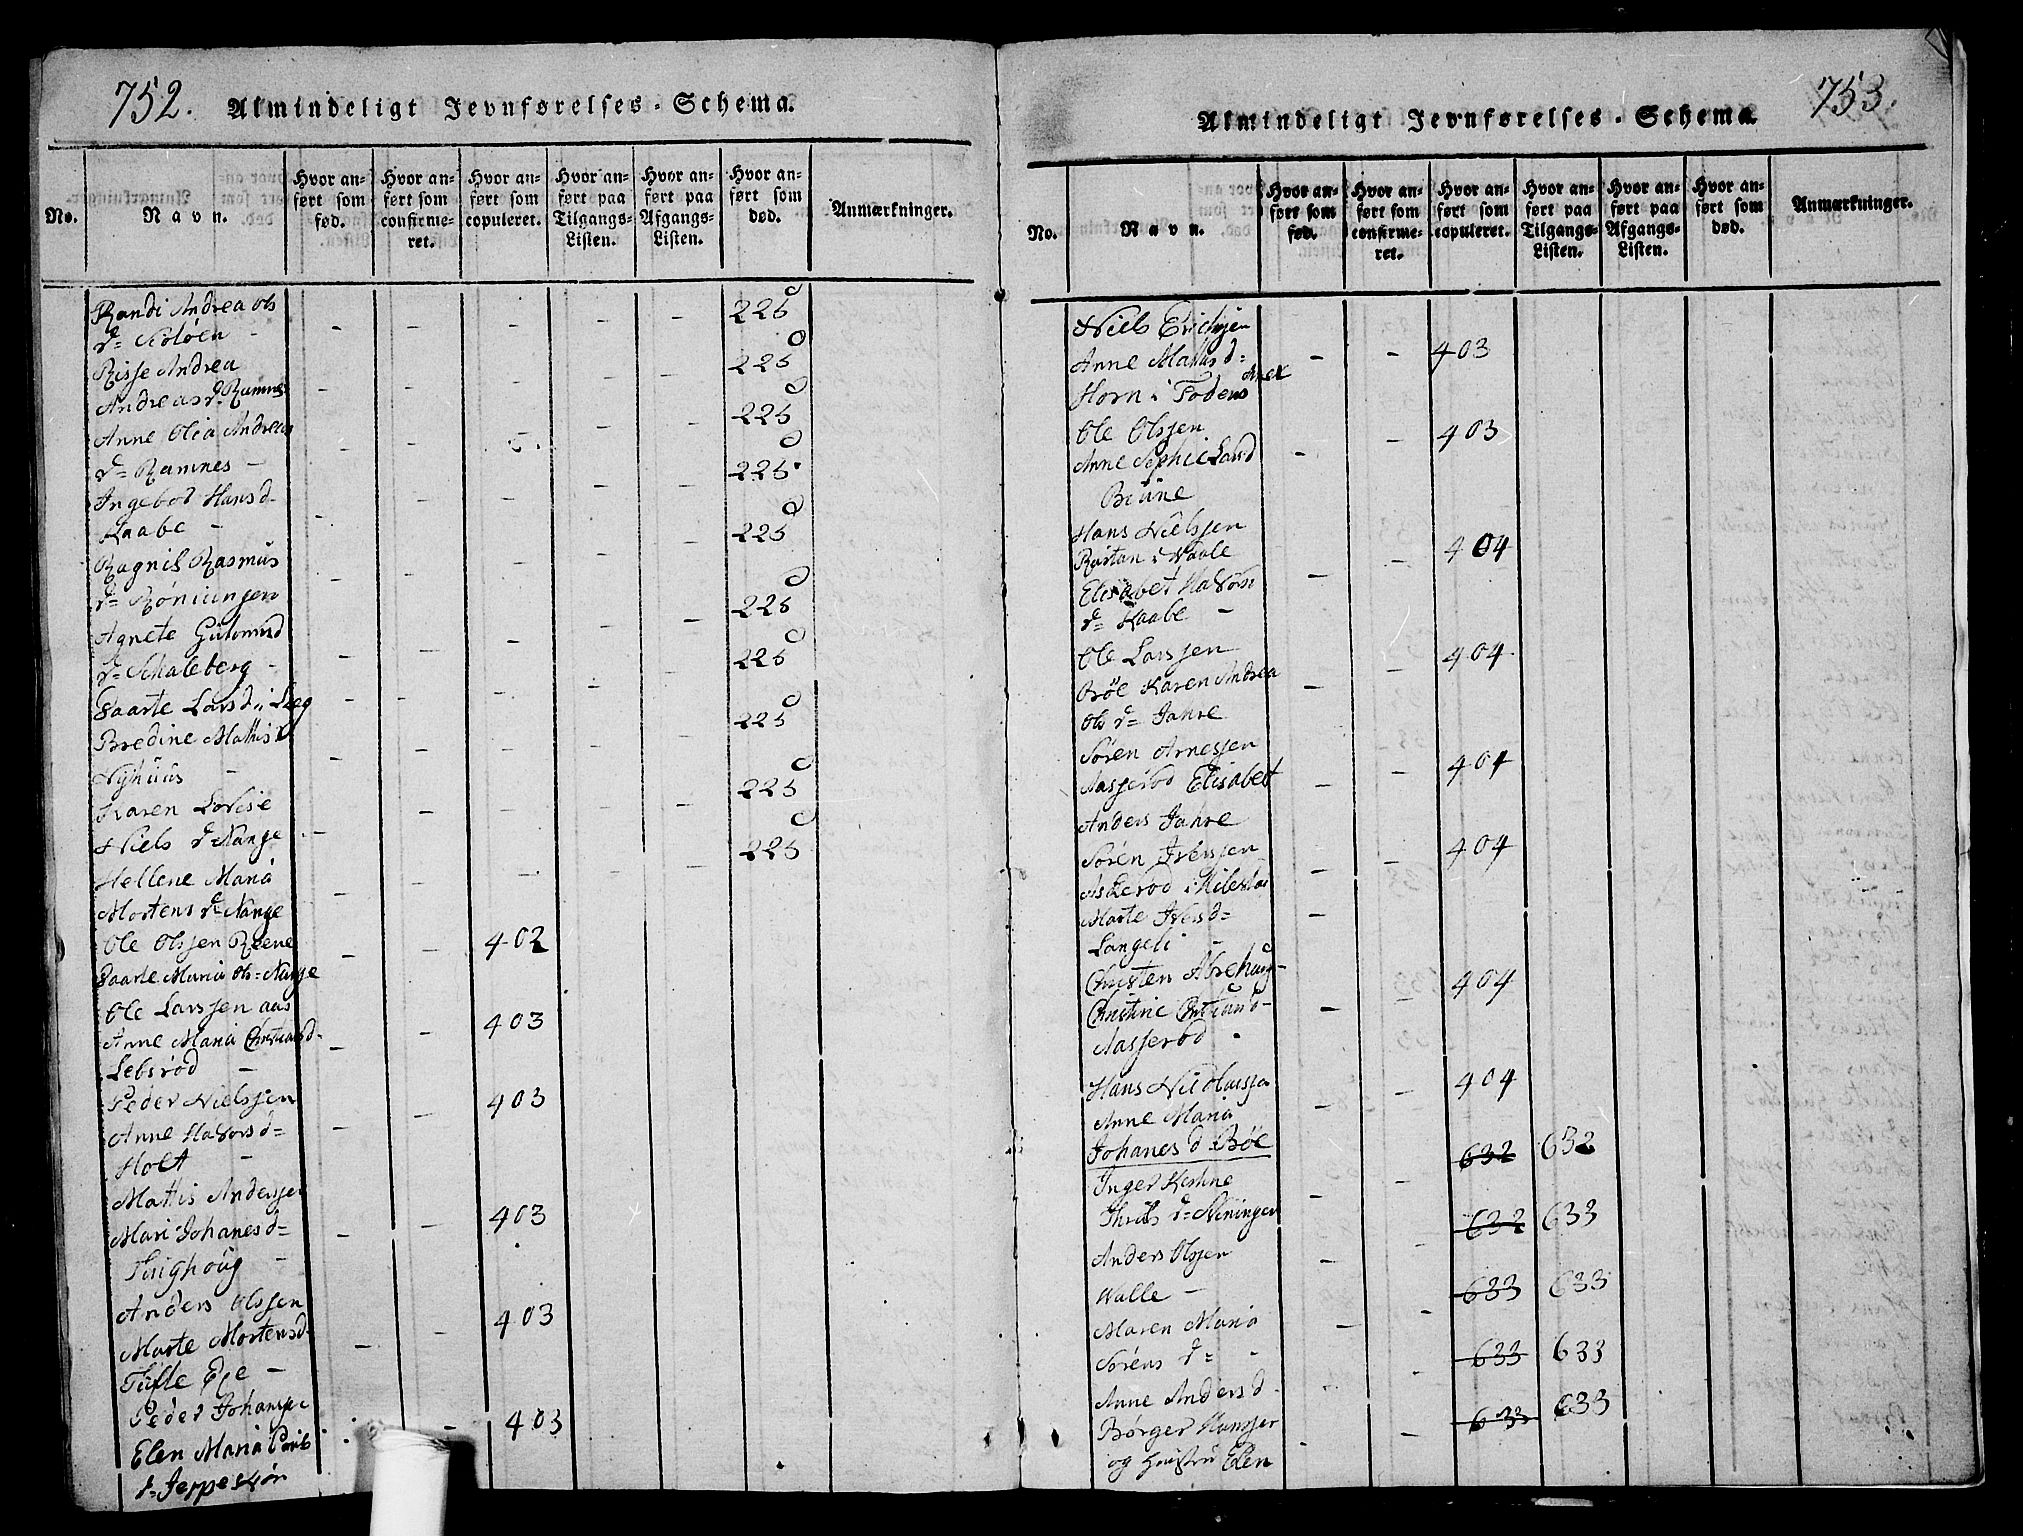 752.
Almindeligt Jevnførelses-Schema.
No.
Navn.
Hvor anført som fød.
Hvor anført som confirmeret.
Hvor anført som copuleret.
Hvor anført paa Tilgangs-Listen.
Hvor anført paa Afgangs-Listen.
Hvor anført som død.
Anmærkninger.
Randi Andrea Ols
d= - 225
Risse Andrea
Andreas d. Ramnes 225
Anne Olia Andreas
d= Ramnes - 225
Ingebor Hans d-
Raabe - 225
Ragnil Rasmus
d= Röningen 225
Agnete Gulmund
d= Schaleberg - 225
Lars d. i 225
Bredine Mathis d
Nyhuus - 225
Karen Lovise
Niels d= Nange 225
Hellene Maria
Mortens d= Nange 225
Ole Olsjen Reene 402
Maria Ols= Nange
Ole Larsjen aas 403
Anne Maria Christians d-
Lebsröd -
Peder Nielsjen 403
Anne Halvors d=
Holt -
Mattis Andersjen 403
Mari Johanes d=
-
Anders Olsjen 403
Marte Mortens d-
Tufte Ege -
Peder Johansje 403
Elen Maria
d= Jeppeskör
753.
Almindeligt Jevnførelses-Schema.
No.
Navn.
Hvor anført som fød.
Hvor anført som confirmeret.
Hvor anført som copuleret.
Hvor anført paa Tilgangs-Listen.
Hvor anført paa Afgangs-Listen.
Hvor anført som død.
Anmærkninger.
Niels Erichsjen
Anne Mathis d= 403
Horn i Fodens Anex
Ole Olsjen 403
Anne Sophie Lars d
Brune
Hans Nielsjen
i Vaale 404
Elisabet Halvors
d= Raabe -
Ole Larsjen 404
Bröe Karen Andrea
Ols d= Jahre
Sören Arnesjen
Aasjeröd Elisabet 404
Anders Jahre
Sören Iversjen 404
Askeröd i
Marte Ivers d=
Langeli -
Christen Abraham- 404
Christine Christians d-
Aasjeröd -
Hans Nicolaisjen 404
Anne Maria
Johanes d Böe 632 632
Inger Kirstine
d= 632 633
Anders Olsjen
Walle - 633 633
Maren Maria
Sörens d= - 633 633
Anne Anders d-
Börger Hansjen 633 633
og Hustru Elen